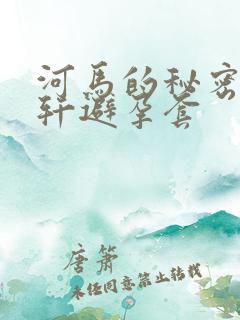 河马的秘密
轩避孕套
唐箫
未经同意禁止转载